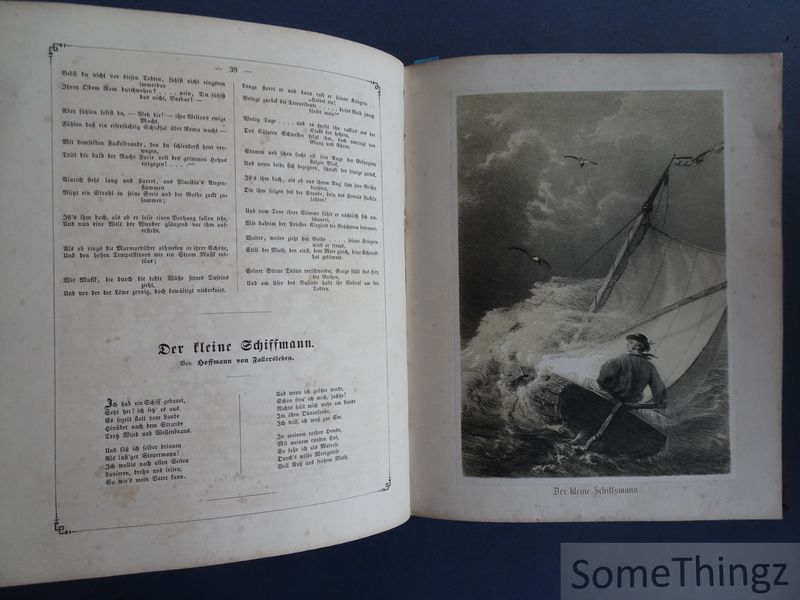 — 38 —
Bebst du nicht vor diesen Todten, fühlst nicht ringsum
immerdar
Ihren Odem Rom durchwehen? .... nein, Du fühlst
das nicht, Barbar! —
Aber fühlen sollst du, — Weh dir! — ihre Weltens ewige
Macht,
Fühlen daß ein eifersüchtig Schicksal über Roma wacht —
Mit demselben Fackelbrande, den du schleuderst heut ver-
wegen,
Tritt die bald der Rache Furie voll des grimmen Hohns
entgegen! ...."
Alarich steht lang und starret, aus Placidia's Augen-
flammen
Blitzt ein Strahl in seine Seele und der Gothe zuckt zu-
sammen;
Ist's ihm doch, als ob er leise einen Vorhang fallen sehe,
Und nun eine Welt der Wunder glänzend vor ihm auf-
erstehe.
Als ob rings die Marmorbilder athmeten in ihrer Schöne,
Und den hohen Tempelstirnen wie ein Strom Musik ent-
töne;
Wie Musik, die durch die todte Wüste seines Daseins
zieht,
Und vor der der Löwe zornig, doch bewältigt niederkniet.
Lange starrt er und dann ruft er seinen Kriegern ..
„Haltet ein!
Bringt zurück die Tempelbeute .... dieses Weib jedoch
bleibt mein!"
Wenig Tage .... und es zieht ihn rastlos aus der
Stadt der hehren,
Das Cäsaren Schwester folgt ihm, doch umringt von
Glanz und Ehren.
Stumm und schen sucht oft sein Auge der Gefangenen
Blick,
Und wenn beide sich begegnen, schrickt der seinige zurück.
Ist's ihm doch, als ob aus ihrem Aug' ihm jene Geister
drohten,
Die ihm folgen seit der Stunde, drin des Frevels Fackeln
lohten!
Und vom Tone ihrer Stimme fühlt er nächtlich sich um-
schauert,
Wie daheim der Priester Klaglied die Geächteten
Weiter, weiter zieht der Gothe .... seinen Kriegern
wird er fremd,
Still der Muth, den einst, dem Meer gleich, keine Schranke
hat gehemmt.
Seiner Stirne Dräun verschwindet, Sorge füllt das Herz
der Gothen,
Und am Ufer des Busento hallt ihr Wehruf um den
Todten.
Der kleine Schiffmann.
Von Hoffmann von Fallersleben.
Ich hab ein Schiff gebauet,
Seht her! ich seh' es aus.
Es segelt flott vom Lande
Hinüber nach dem Strande
Trotz Wind und Wellenbraus.
Und säß ich selber drinnen
Als lust'ger Steuermann!
Ich wollts nach allen Seiten
Lavieren, drehn und leiten,
So wie's mein Vater kann.
Und wenn ich größer werde,
Schon freu' ich mich, juchhe!
Nichts hält mich mehr am Lande
Im öden Dünensande,
Ich will, ich muß zur See.
In meinem rothen Hemde,
Mit meinem runden Hut,
So fahr ich als Matrose
Durch's wilde Meergetose
Voll Lust und frohem Muth.
Der kleine Schiffsmann
SomeThingz